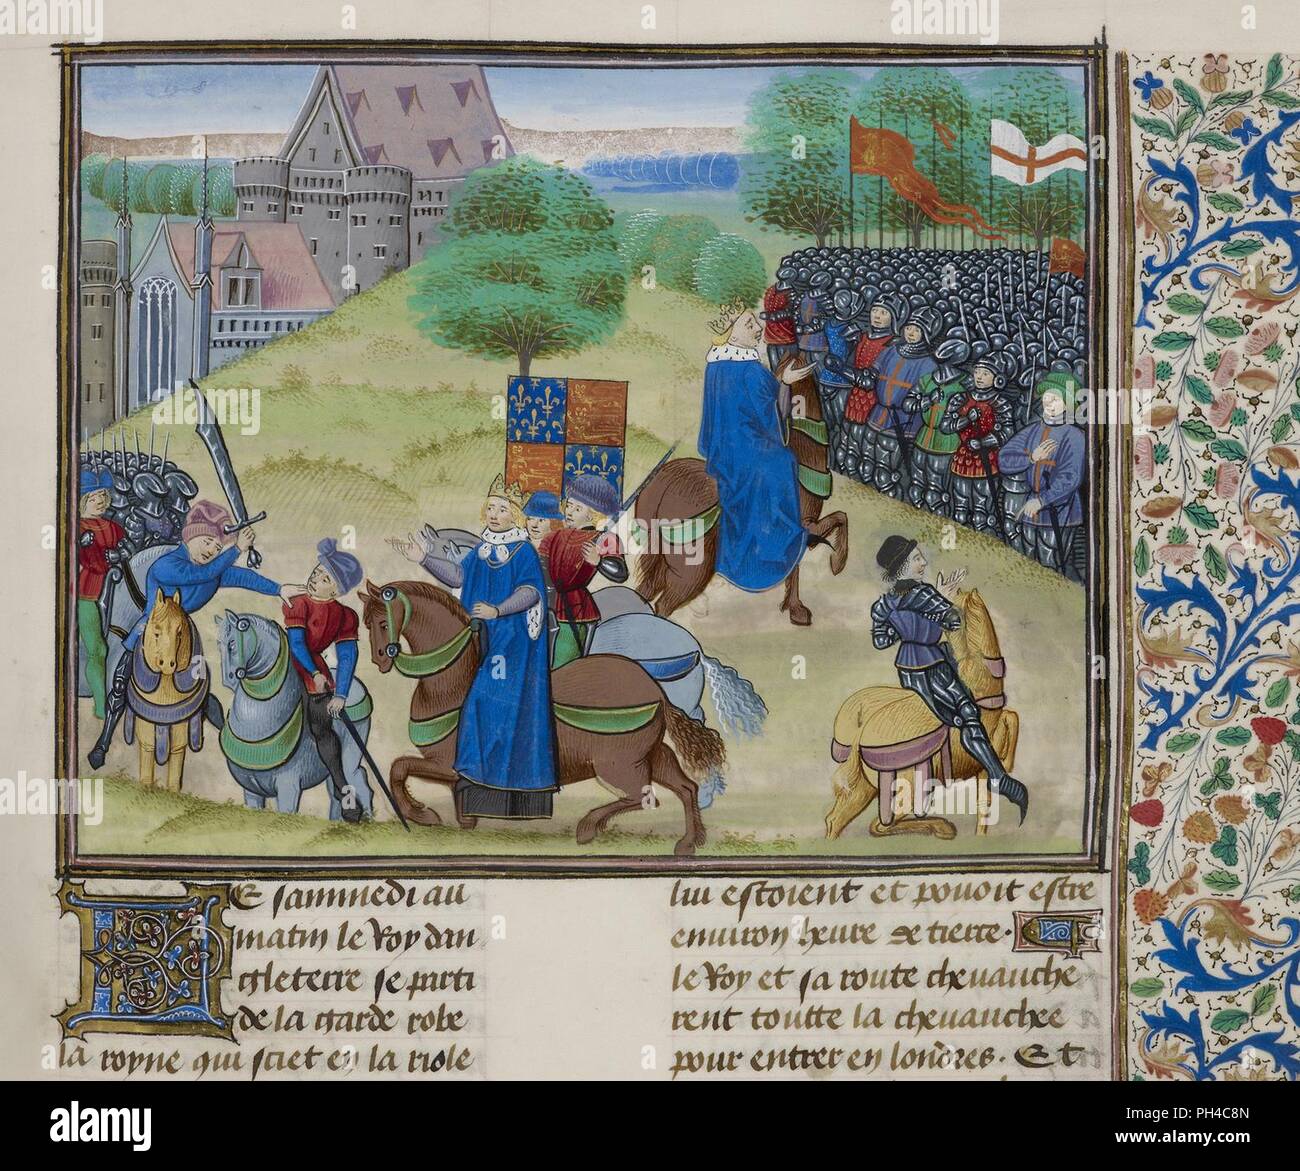 LE sammedi au
matin le Roy dan
gleterre se parti
de la garde robe
la royne qui sciet en la riole
lui estoient et pouoit estre
enuiron heure de tierce.
le Roy et sa route cheuauche
rent toutte la cheuauchee
pour entrer en londres. Et
alamy
Image ID: PH4C8N
www.alamy.com